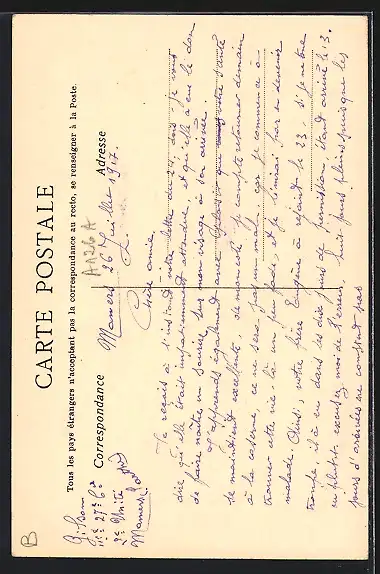 CARTE POSTALE
Tous les pays étrangers n'acceptant pas la correspondance au recto, se renseigner à la Poste.
Correspondance
Adresse
G. Bom
27e
2e Unité
Mamers
A126A
Mamers 26 Juillet 1917.
Chère amie,
Je reçois à l'instant votre lettre du 24, dois-je vous
dire qu'elle était impatiemment attendue, et qu'elle a eu le don
de faire naître un sourire sur mon visage à son arrivée.
J'apprends également avec plaisir que votre santé
se maintient excellente, de mon côté je compte retourner demain
à la caserne, ce ne sera pas un mal, car je commence à
trouver cette vie là un peu fade, et je finirai par en devenir
malade. Ainsi, votre frère Eugène a rejoint le 23, si je ne me
trompe, il a eu dans les dix jours de permission étant arrivé le 13.
ou plutôt excusez moi de l'erreur, huit jours pleins puisque les
jours d'arrivées ne comptent pas
B